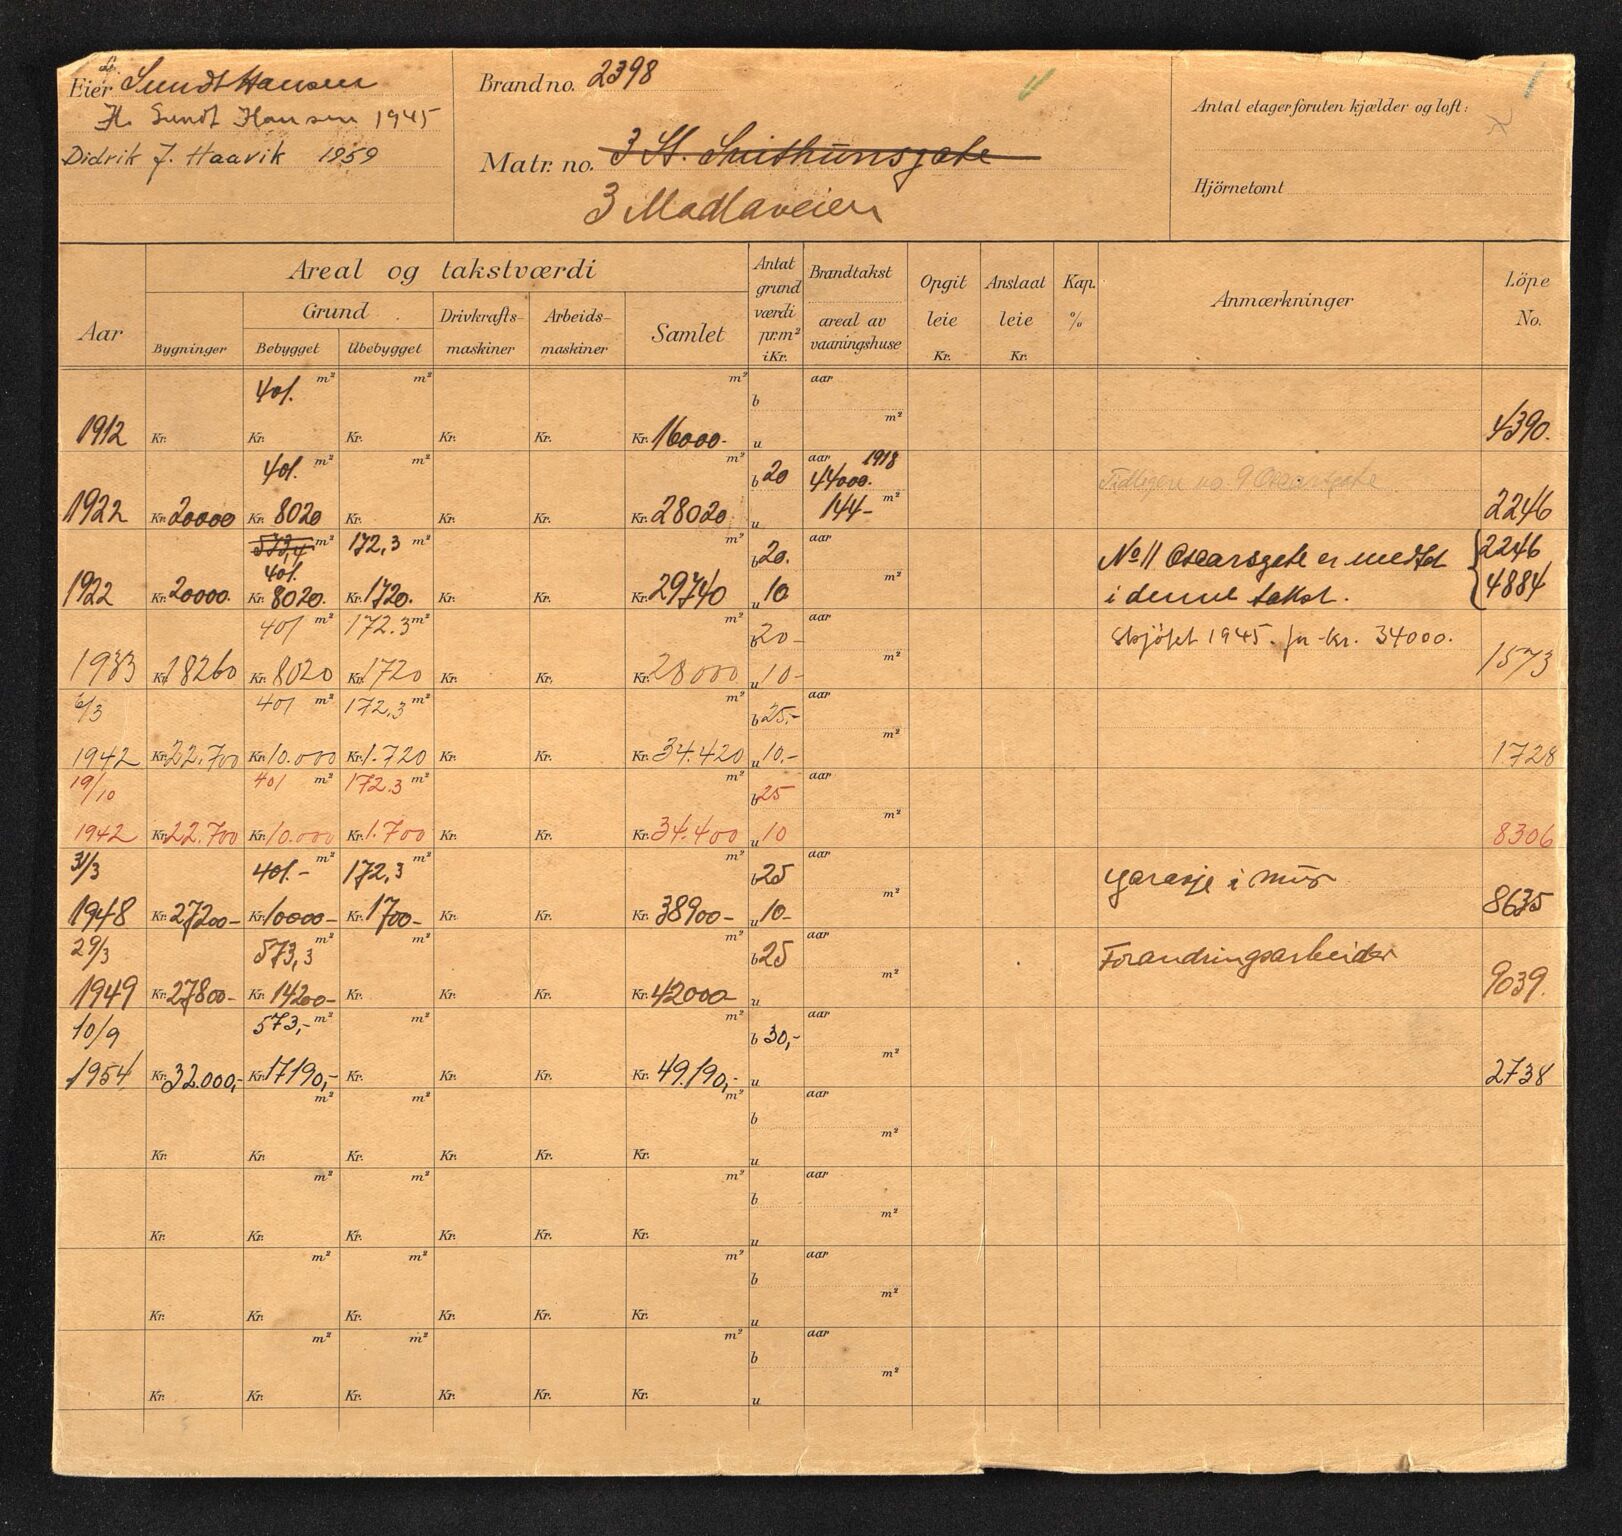 Eier Sundt Hansen
H. Sundt Hansen 1945
Didrik J. Haavik 1959
Brand no. 2398
Matr. no. 3 St. Svithunsgate
3 Madlaveien
Antal etager foruten kjælder og loft:
Hjörnetomt
Aar
Areal og takstværdi
Bygninger
Grund
Bebygget
Ubebygget
Drivkrafts-maskiner
Arbeids-maskiner
Samlet
Antat grund værdi pr. m² i Kr.
Brandtakst
areal av vaaningshuse
Opgit leie Kr.
Anslaat leie Kr.
Kap. %
Anmærkninger
Löpe No.
401. m² m² m² aar
b
1912 Kr. Kr. Kr. Kr. Kr. Kr. 16000.- u m² 4390.
401. m² m² m² b 20 aar 1918
44000. Tidligere no 9 Oscarsgate
1922 Kr. 20000 Kr. 8020 Kr. Kr. Kr. Kr. 28020 u 144- m² 2246
572,4 m² 172,3 m² m² b 20. aar No 11 Oscarsgate er medtat 2246
401.
1922 Kr. 20000. Kr. 8020. Kr. 1720. Kr. Kr. Kr. 29740 u 10 m² i denne takst. 4884
401 m² 172.3 m² m² b 20- aar Skjøtet 1945 for kr. 34000.
1933 Kr. 18260 Kr. 8020 Kr. 1720 Kr. Kr. Kr. 28000 u 10- m² 1573
6/3 401 m² 172.3 m² m² b 25.- aar
1942 Kr. 22.700 Kr. 10.000 Kr. 1.720 Kr. Kr. Kr. 34.420 u 10.- m² 1728
19/10 401 m² 172.3 m² m² b 25 aar
1942 Kr. 22.700 Kr. 10.000 Kr. 1.700 Kr. Kr. Kr. 34.400 u 10 m² 8306
31/3 401.- m² 172,3 m² m² b 25 aar Garasje i mur
1948 Kr. 27200- Kr. 10000- Kr. 1700- Kr. Kr. Kr. 38900- u 10- m² 8635
29/3 573,3 m² m² m² b 25 aar Forandringsarbeider
1949 Kr. 27800- Kr. 14200- Kr. Kr. Kr. Kr. 42000- u m² 9039.
10/9 573,- m² m² m² b 30,- aar
1954 Kr. 32.000,- Kr. 17190,- Kr. Kr. Kr. Kr. 49.190,- u m² 2738
m² m² m² b aar
Kr. Kr. Kr. Kr. Kr. Kr. u m²
m² m² m² b aar
Kr. Kr. Kr. Kr. Kr. Kr. u m²
m² m² m² b aar
Kr. Kr. Kr. Kr. Kr. Kr. u m²
m² m² m² b aar
Kr. Kr. Kr. Kr. Kr. Kr. u m²